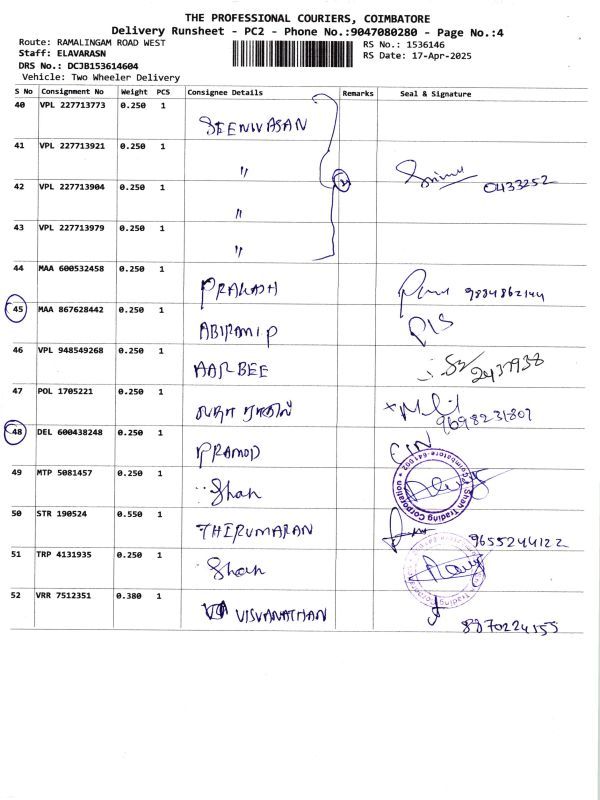 THE PROFESSIONAL COURIERS, COIMBATORE
Delivery Runsheet - PC2 - Phone No.:9047080280 - Page No.:4
Route: RAMALINGAM ROAD WEST
RS No.: 1536146
Staff: ELAVARASN
RS Date: 17-Apr-2025
DRS No.: DCJB153614604
Vehicle: Two Wheeler Delivery
S No Consignment No Weight PCS Consignee Details Remarks Seal & Signature
40 VPL 227713773 0.250 1 SEENIVASAN
41 VPL 227713921 0.250 1 "
0433252
42 VPL 227713904 0.250 1 "
43 VPL 227713979 0.250 1 "
44 MAA 600532458 0.250 1 PRAKASH 9884862144
45 MAA 867628442 0.250 1 ABIRAMI P D/S
46 VPL 948549268 0.250 1 AARBEE 2437938
47 POL 1705221 0.250 1 9698231807
48 DEL 600438248 0.250 1 PRAMOD
49 MTP 5081457 0.250 1 Shah Shah Trading Corporation Coimbatore-641002
50 STR 190524 0.550 1 THIRUMARAN 9655244122
51 TRP 4131935 0.250 1 Shah
52 VRR 7512351 0.380 1 VISVANATHAN 8870224155